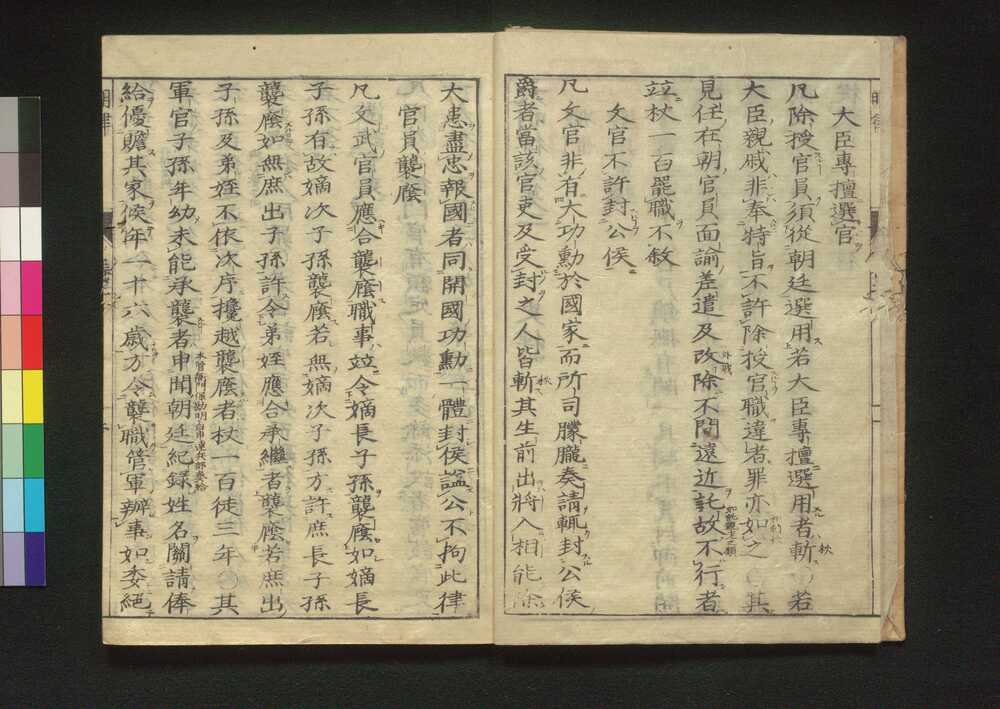 大臣專擅選官
凡除授官員須從朝廷選用若大臣專擅選用者斬○若
大臣親戚非奉特旨不許除授官職違者罪亦如之○其
見任在朝官員面諭差遣及改除不問遠近託故不行者
竝杖一百罷職不敘
文官不許封公侯
凡文官非有大功勳於國家而所司朦朧奏請輒封公侯
爵者當該官吏及受封之人皆斬其生前出將入相能除
大患盡忠報國者同開國功勳一體封侯謚公不拘此律
官員襲廕
凡文武官員應合襲廕職事竝令嫡長子孫襲廕如嫡長
子孫有故嫡次子孫襲廕若無嫡次子孫方許庶長子孫
襲廕如無庶出子孫許令弟姪應合承繼者襲廕若庶出
子孫及弟姪不依次序攙越襲廕者杖一百徒三年○其
軍官子孫年幼未能承襲者申聞朝廷紀錄姓名關請俸
給優贍其家候年一十六歲方令襲職管軍辦事如委絕